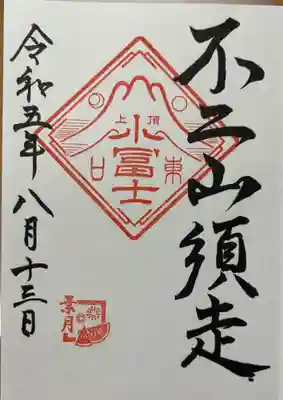 不二山須走
頂上
小冨士
東口
令和五年八月十三日
葉月